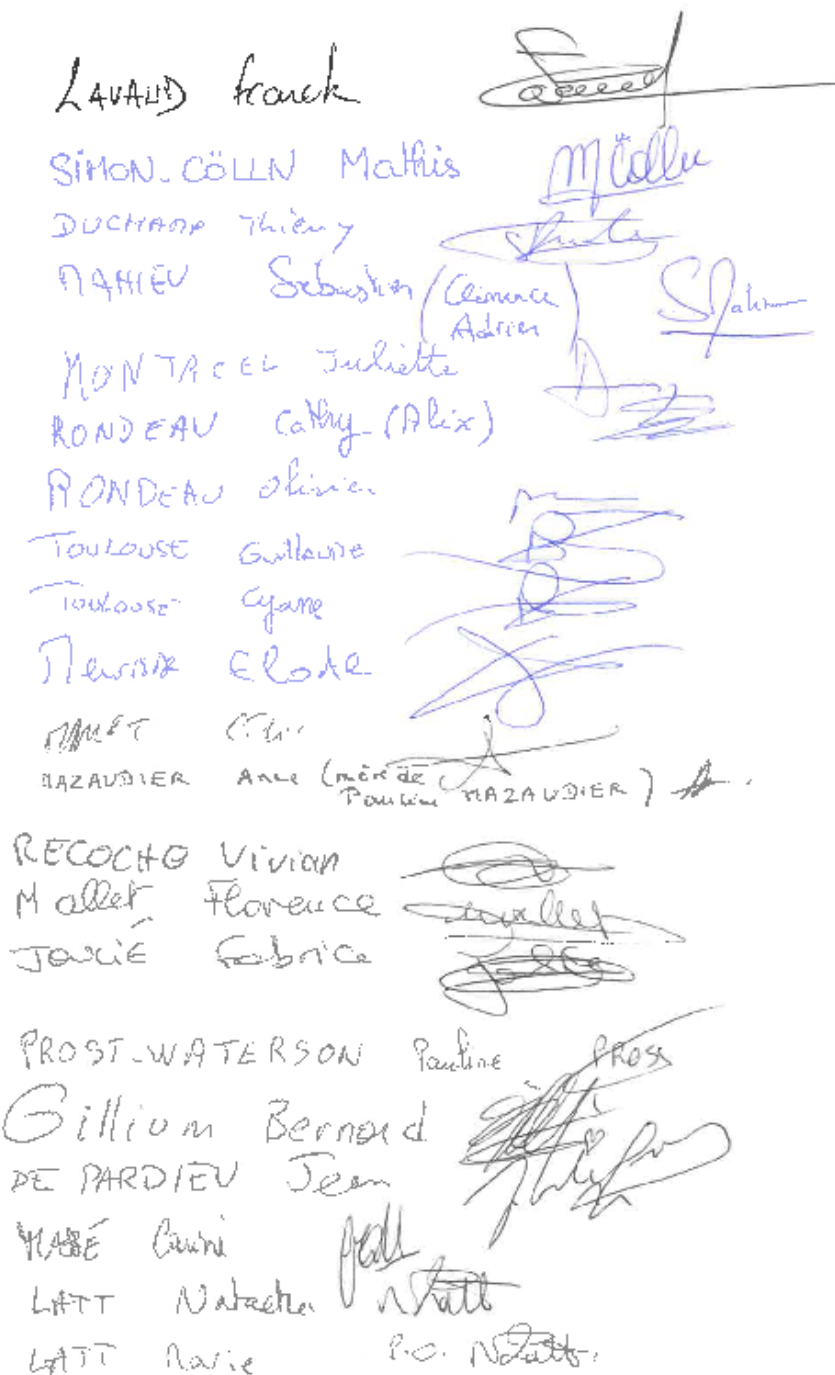 LAVAUD Franck
SIMON-CÖLLN Mathis MCölln
DUCHAMP Thierry
MAHIEU Sébastien (Clémence
Adrien) SMahieu
Juliette
RONDEAU Cathy (Alix)
RONDEAU Olivier
TOULOUSE Guillaume
TOULOUSE Cyane
Elodie
MAZAUDIER Anne (mère de
Pauline MAZAUDIER)
RECOCHO Vivian
Mallet Florence
Fabrice
PROST-WATERSON Pauline PROST
Gillium Bernard
DE PARDIEU Jean
LATT Natacha NLatt
LATT Marie P.O. NLatt